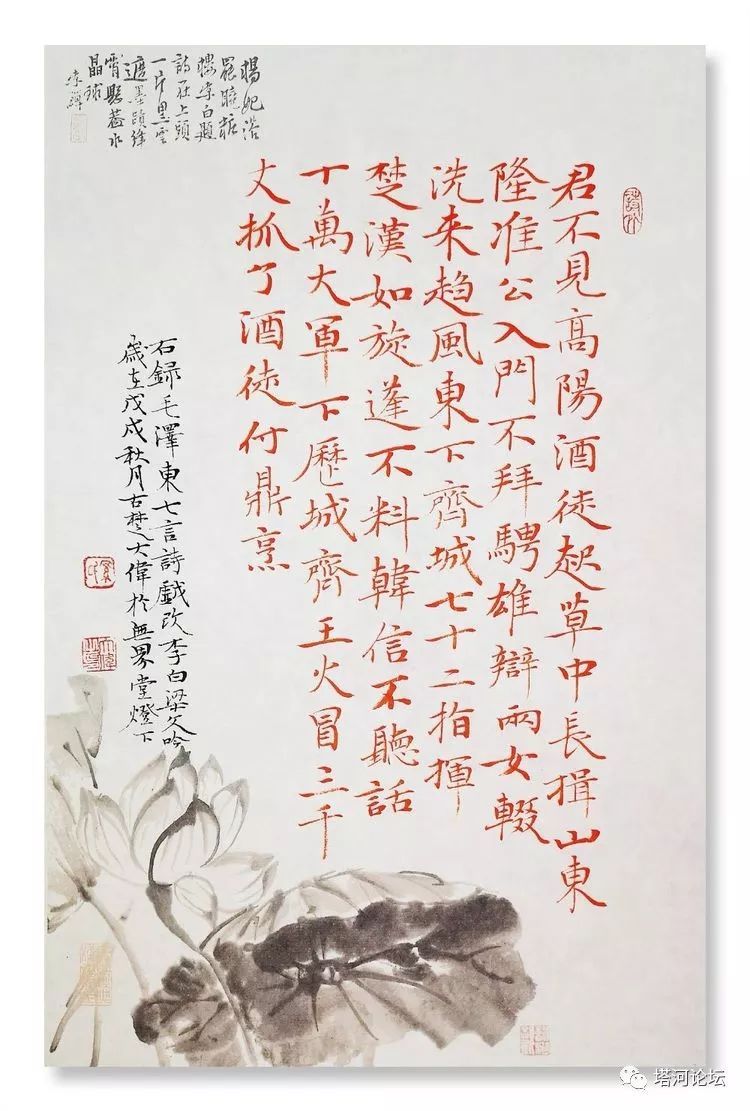 君不見高陽酒徒起草中長揖山東
隆准公入門不拜騁雄辯兩女輟
洗来趨風東下齊城七十二指揮
楚漢如旋蓬不料韓信不聽話
十萬大軍下歷城齊王火冒三千
丈抓了酒徒付鼎烹
右録毛澤東七言詩戲改李白梁父吟
歲在戊戌秋月古楚大偉於無界堂燈下
楊妃浴
罷晚粧
樓李白題
詩在上頭
一片黑雲
遮墨蹟絳
霄懸著水
晶球
塔河论坛